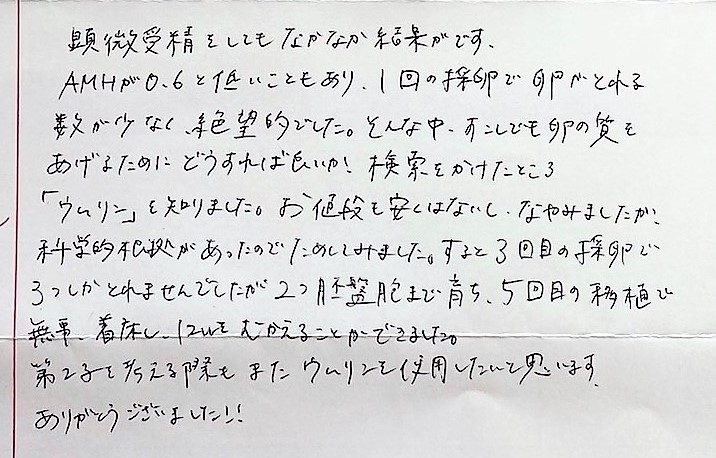 顕微受精をしてもなかなか結果がです、
AMHが0.6と低いこともあり、1回の採卵で卵がとれる
数が少なく、絶望的でした。そんな中、すこしでも卵の質を
あげるためにどうすれば良いか!検索をかけたところ
「ウムリン」を知りました。お値段も安くはないし、なやみましたが、
科学的根拠があったのでためしてみました。すると3回目の採卵で
3つしかとれませんでしたが2つ胚盤胞まで育ち、5回目の移植で
無事、着床し、12wをむかえることができました。
第2子を考える際もまたウムリンを使用したいと思います。
ありがとうございました!!